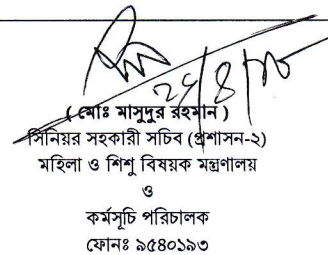 ( মোঃ মাসুদুর রহমান )
সিনিয়র সহকারী সচিব (প্রশাসন-২)
মহিলা ও শিশু বিষয়ক মন্ত্রণালয়
ও
কর্মসূচি পরিচালক
ফোনঃ ৯৫৪০১৯৩